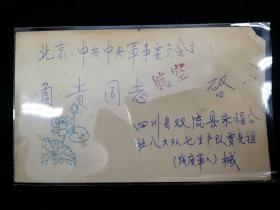 北京:中共中央军事委员会
航空
负责同志 启
四川省双流县永福公
社八大队七生产队贾克祖
(残废军人) 缄